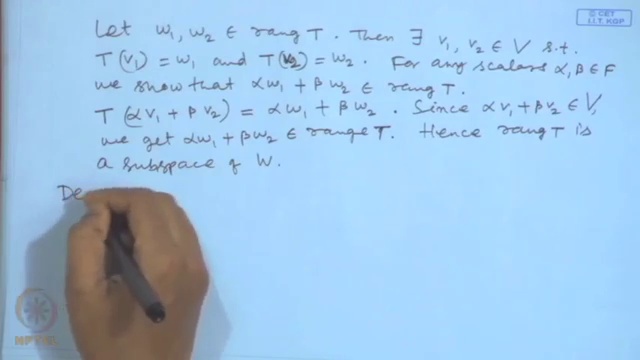 © CET
I.I.T. KGP
Let w₁, w₂ ∈ rang T. Then ∃ v₁, v₂ ∈ V s.t.
T(v₁) = w₁ and T(v₂) = w₂. For any scalars α, β ∈ F
we show that αw₁ + βw₂ ∈ rang T.
T(αv₁ + βv₂) = αw₁ + βw₂. Since αv₁ + βv₂ ∈ V,
we get αw₁ + βw₂ ∈ range T. Hence rang T is
a subspace of W.
De
NPTEL